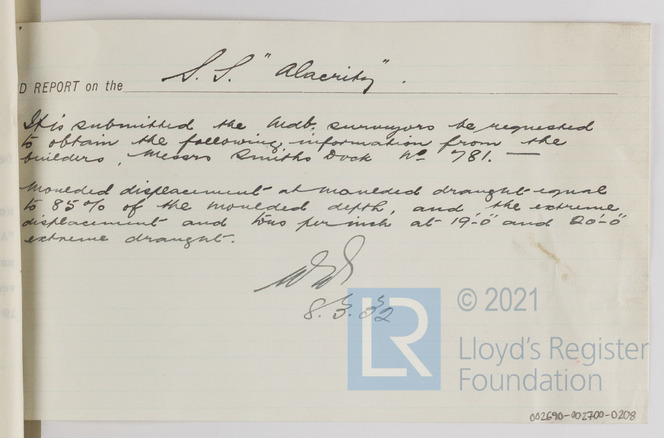 S. S. "Alacrity".
D REPORT on the
It is submitted the Mdb. surveyors be requested
to obtain the following information from the
builders, Messrs Smiths Dock No 781. —
Moulded displacement at moulded draught equal
to 85% of the moulded depth, and the extreme
displacement and tons per inch at 19'-0" and 20'-0"
extreme draught.
© 2021
LR
Lloyd's Register
Foundation
002690-002700-0208